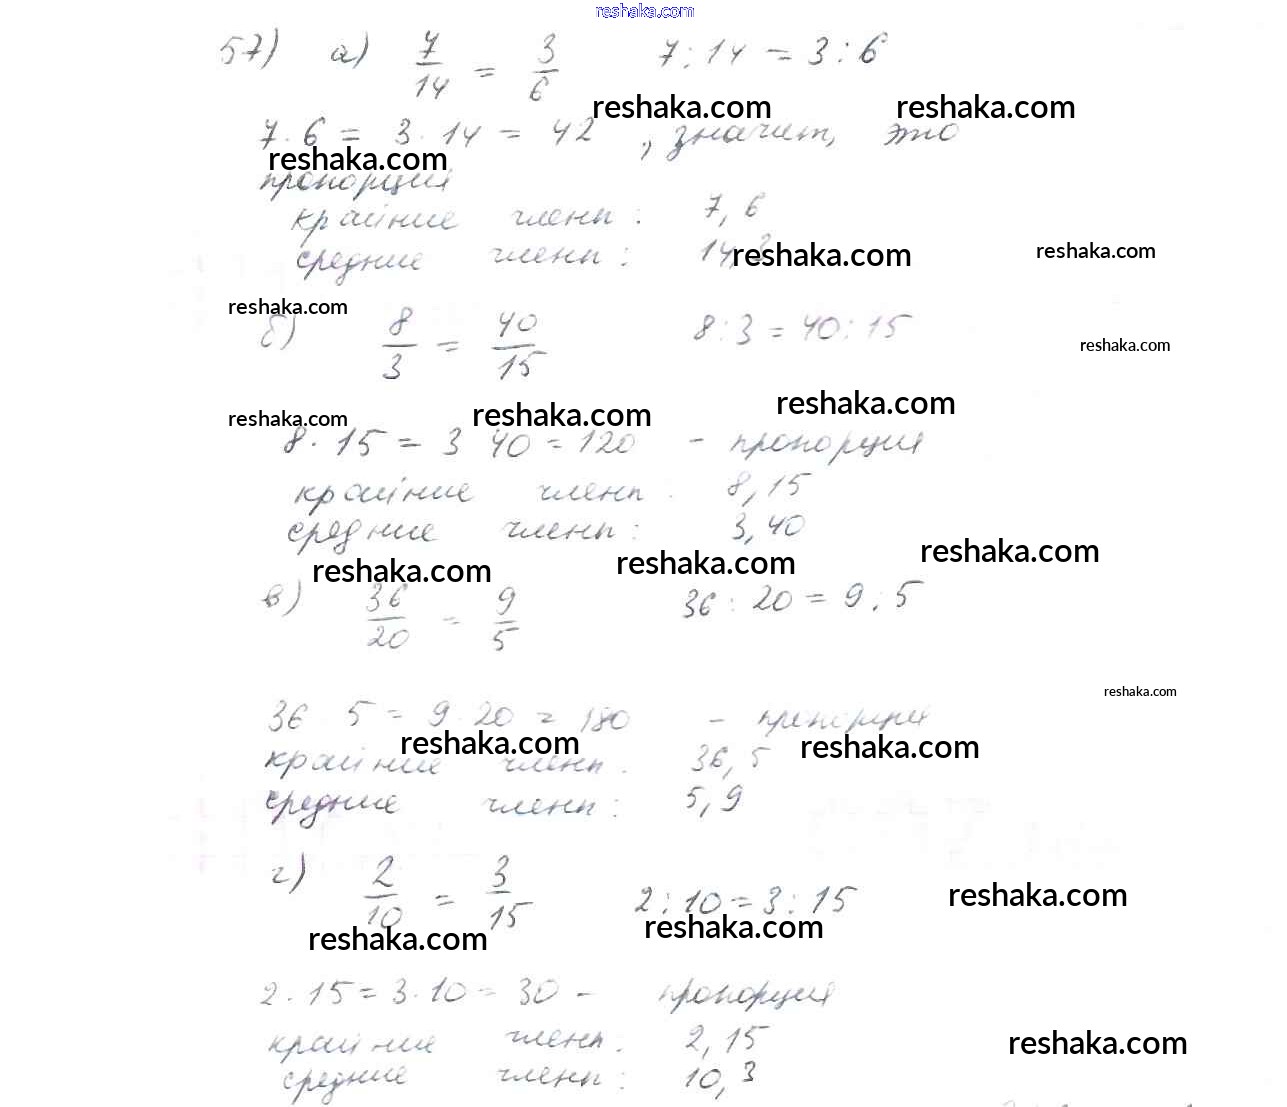 reshaka.com
57) а) 7/14 = 3/6 7 : 14 = 3 : 6
reshaka.com reshaka.com
7 · 6 = 3 · 14 = 42 , значит, это
reshaka.com
пропорция
крайние члены : 7, 6
средние члены : 14, 3
reshaka.com reshaka.com
reshaka.com
б) 8/3 = 40/15 8 : 3 = 40 : 15
reshaka.com
reshaka.com reshaka.com reshaka.com
8 · 15 = 3 40 = 120 - пропорция
крайние члены : 8, 15
средние члены : 3, 40
reshaka.com reshaka.com reshaka.com
в) 36/20 = 9/5 36 : 20 = 9 : 5
reshaka.com
36 · 5 = 9 · 20 = 180 - пропорция
reshaka.com reshaka.com
крайние члены : 36, 5
средние члены : 5, 9
г) 2/10 = 3/15 2 : 10 = 3 : 15
reshaka.com
reshaka.com reshaka.com
2 · 15 = 3 · 10 = 30 - пропорция
крайние члены : 2, 15
reshaka.com
средние члены : 10, 3